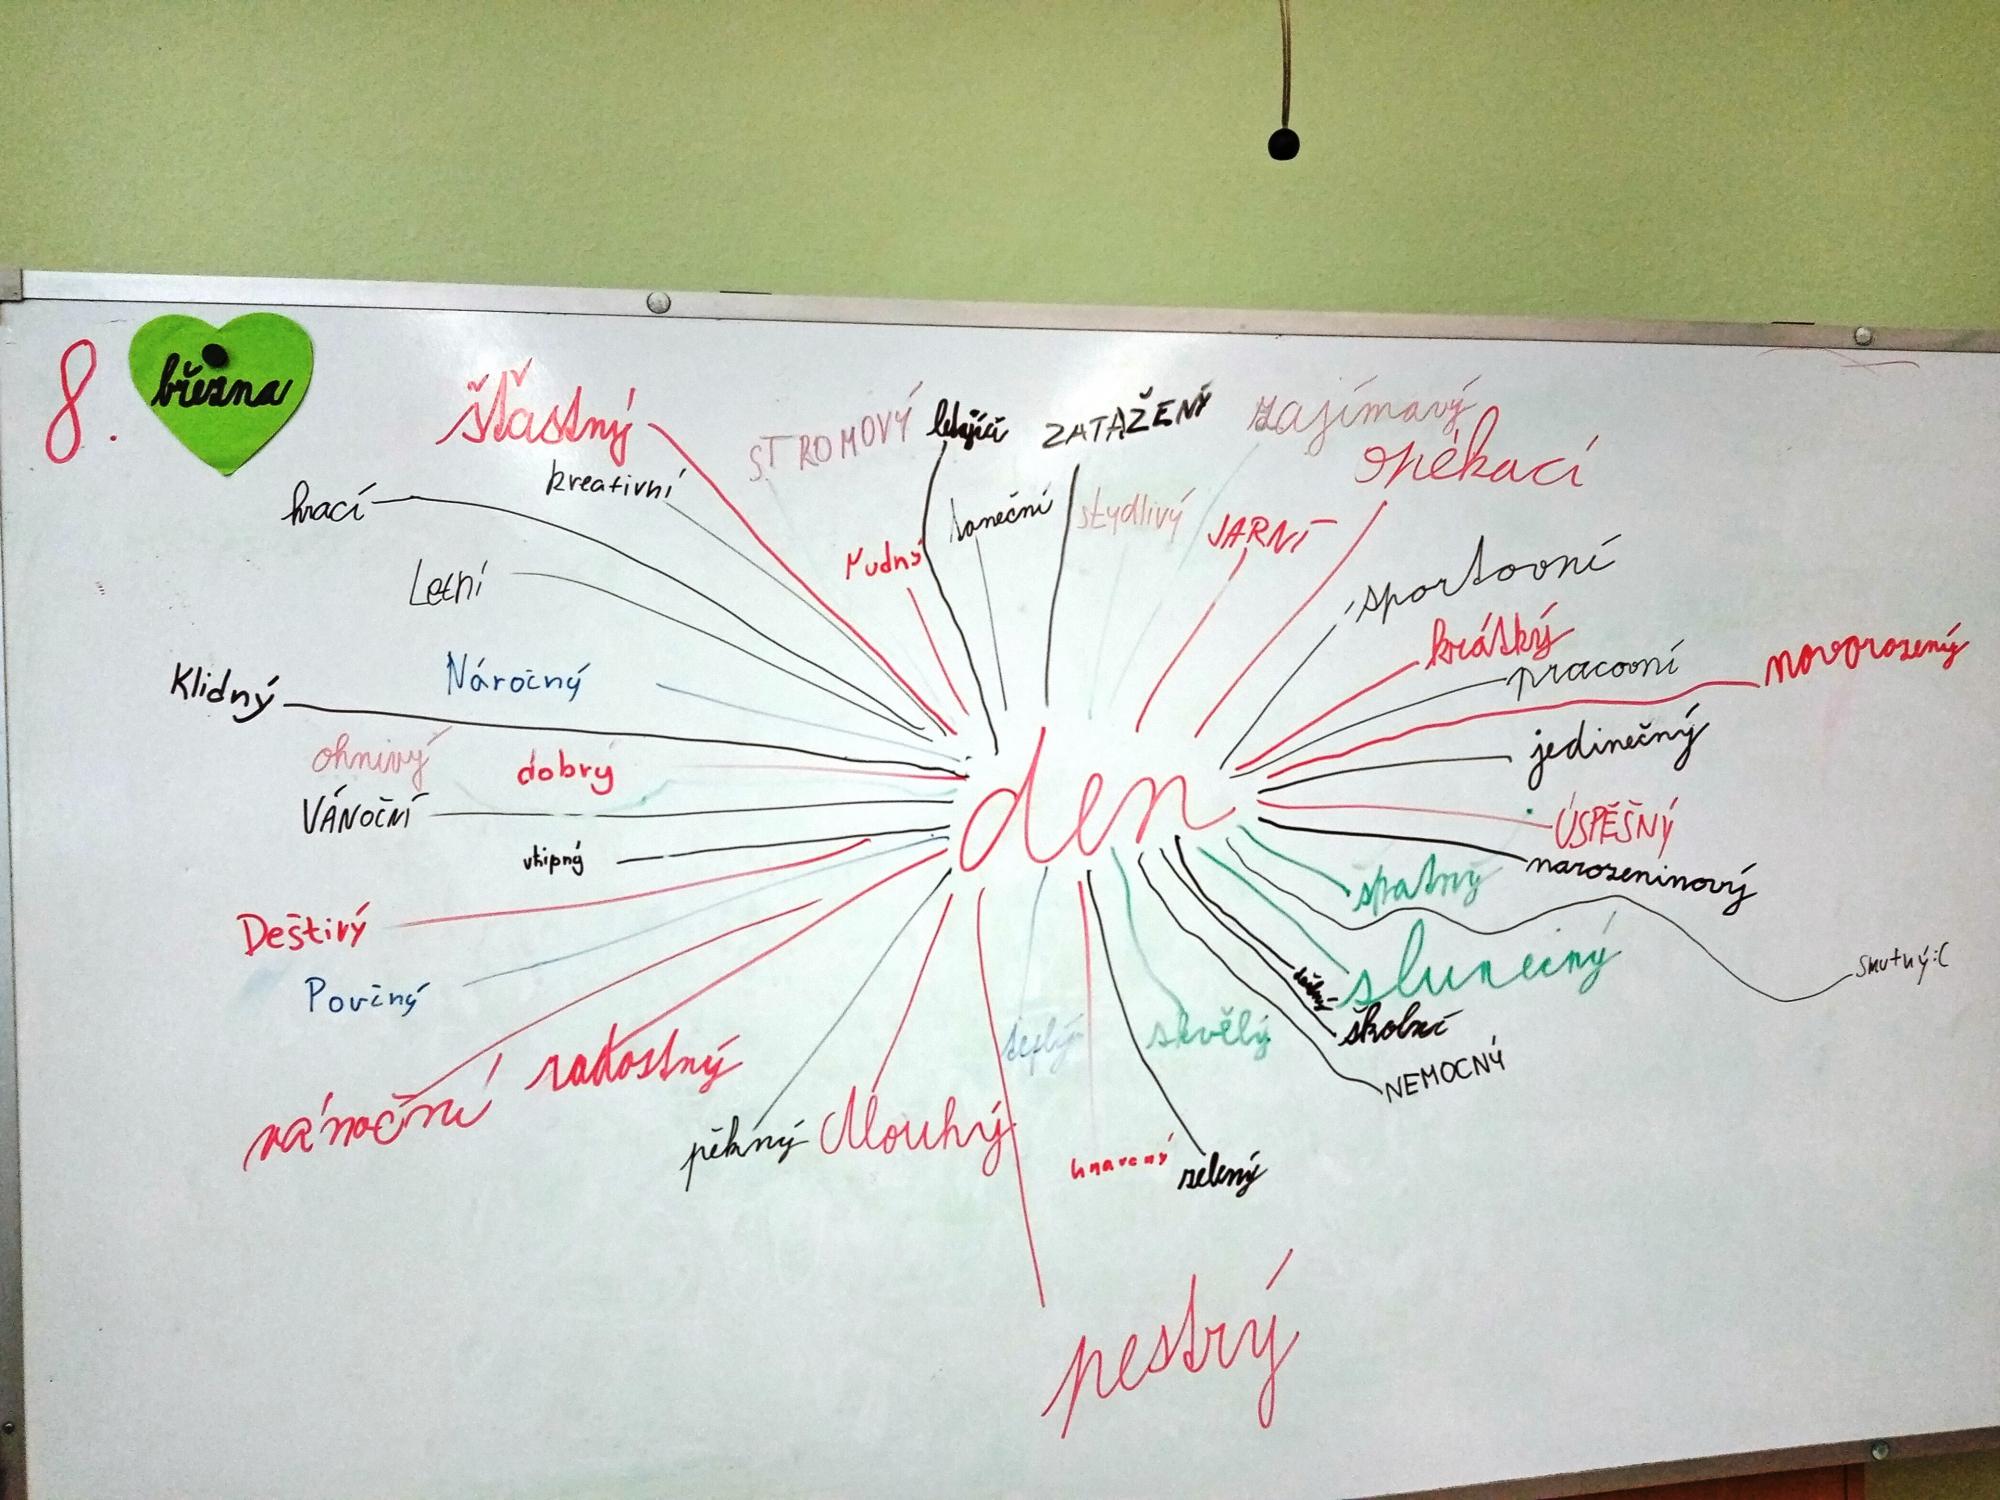 8. března
šťastný
STROMOVÝ
létající
ZATAŽENÝ
zajímavý
opékací
kreativní
hrací
taneční
stydlivý
JARNÍ
nudný
sportovní
Letní
krátký
novorozený
pracovní
Klidný
Náročný
jedinečný
ohnivý
dobrý
VÁNOČNÍ
ÚSPĚŠNÝ
den
vtipný
narozeninový
špatný
Deštivý
smutný:(
slunečný
Povičný
školní
teplý
skvělý
NEMOCNÝ
radostný
vánoční
pěkný
dlouhý
unavený
zelený
pestrý